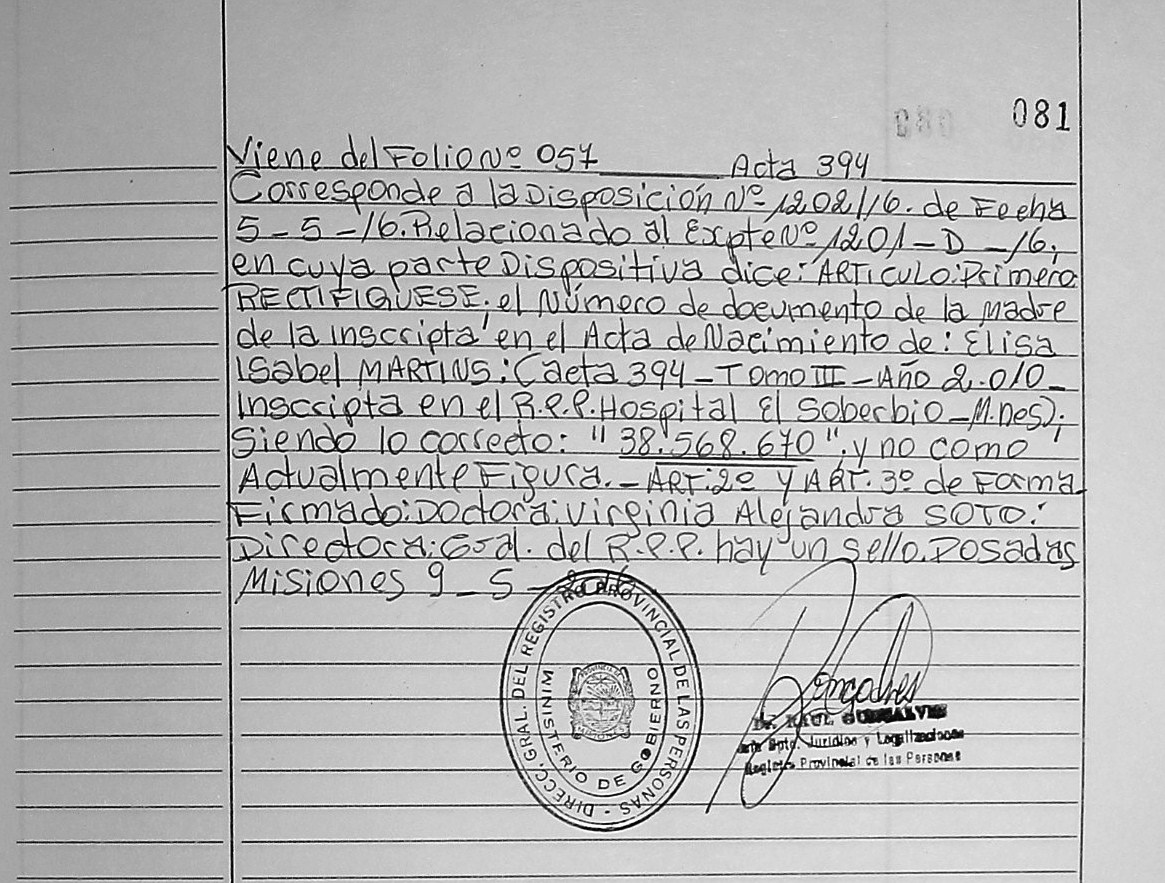 081
Viene del Folio Nº 057 Acta 394
Corresponde a la Disposición Nº 1202/16. de Fecha
5-5-16. Relacionado al Expte Nº 1201-D-16,
en cuya parte Dispositiva dice: ARTICULO: Primero
RECTIFIQUESE, el Número de documento de la Madre
de la inscripta en el Acta de Nacimiento de: Elisa
Isabel MARTINS: (acta 394 - TOMO III - Año 2.010-
Inscripta en el R.P.P. Hospital El Soberbio - M.nes);
Siendo lo correcto: "38.568.670", y no como
Actualmente Figura. - ART: 2º y ART. 3º de Forma
Firmado: Doctora: Virginia Alejandra SOTO:
Directora: Gral. del R.P.P. hay un sello. Posadas
Misiones 9-5-
DIRECC. GRAL. DEL REGISTRO PROVINCIAL DE LAS PERSONAS -
MINISTERIO DE GOBIERNO
Dr. RAUL GONSALVES
Dpto. Jurídico y Legalizaciones
Registro Provincial de las Personas